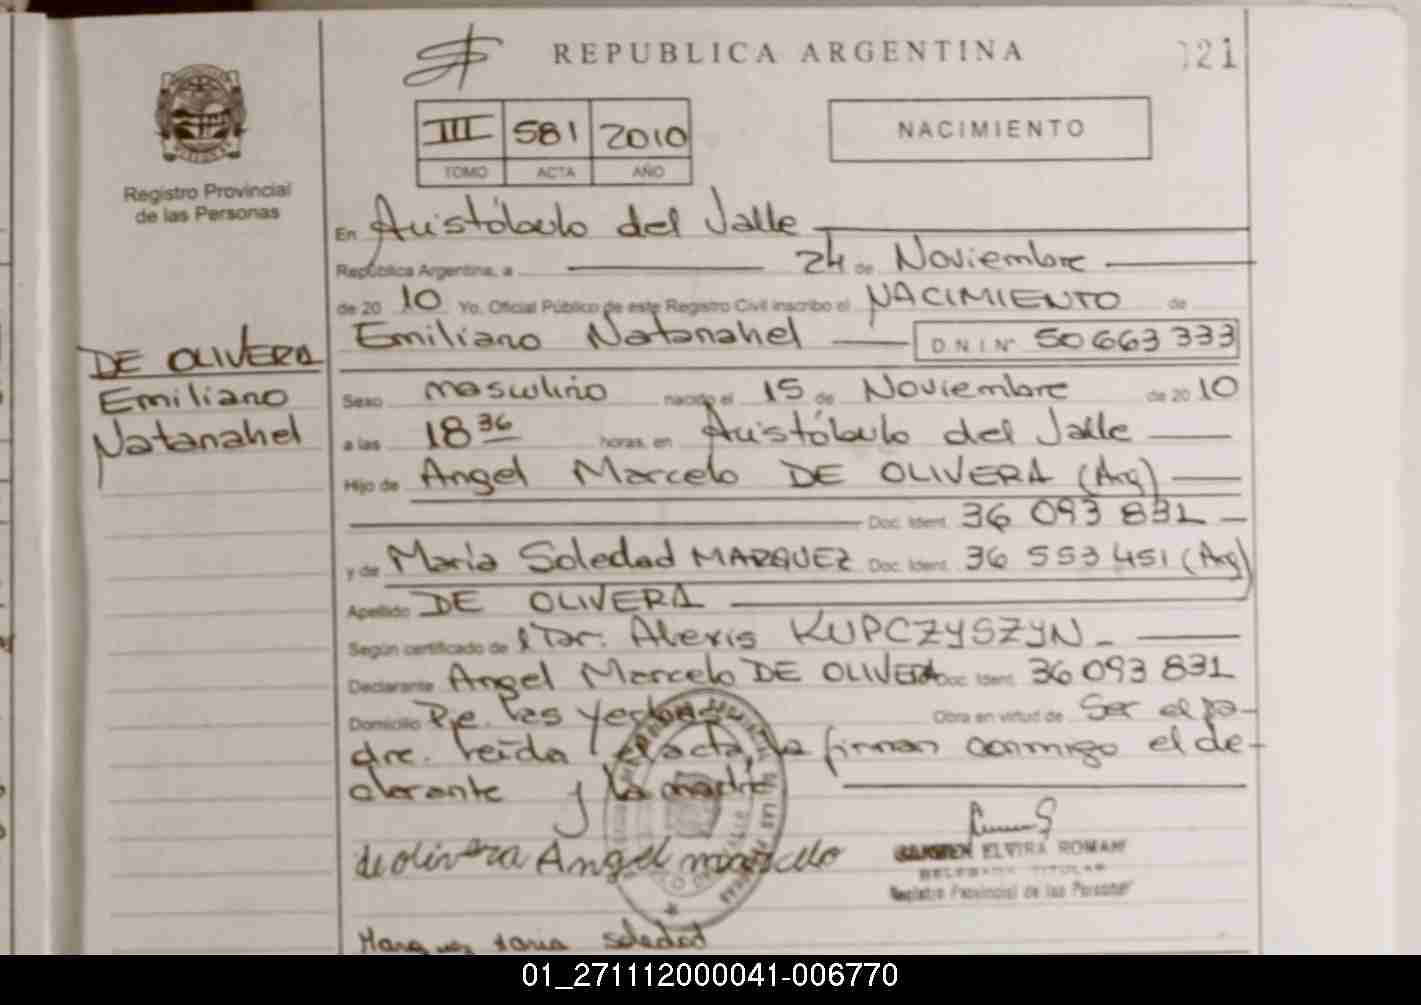 REPUBLICA ARGENTINA
021
III 581 2010
TOMO ACTA AÑO
NACIMIENTO
Registro Provincial
de las Personas
En Aristóbulo del Valle
República Argentina, a 24 de Noviembre
de 20 10 Yo, Oficial Público de este Registro Civil inscribo el NACIMIENTO de
Emiliano Natanahel D.N.I Nº 50 663 333
DE OLIVERA
Emiliano
Natanahel
Sexo masculino nacido el 15 de Noviembre de 20 10
a las 18 36 horas, en Aristóbulo del Valle
Hijo de Angel Marcelo DE OLIVERA (Arg)
Doc. Ident. 36 093 831
y de Maria Soledad MARQUEZ Doc. Ident. 36 553 451 (Arg)
Apellido DE OLIVERA
Según certificado de Dr. Alexis KUPCZYSZYN
Declarante Angel Marcelo DE OLIVERA Doc. Ident. 36 093 831
Domicilio Pje. las Obra en virtud de Ser el pa-
dre. leída el acta, la firman conmigo el de-
clarante y la madre
de olivera Angel marcelo
CARMEN ELVIRA ROMAN
DELEGADA TITULAR
Registro Provincial de las Personas
Marquez maria soledad
01_271112000041-006770